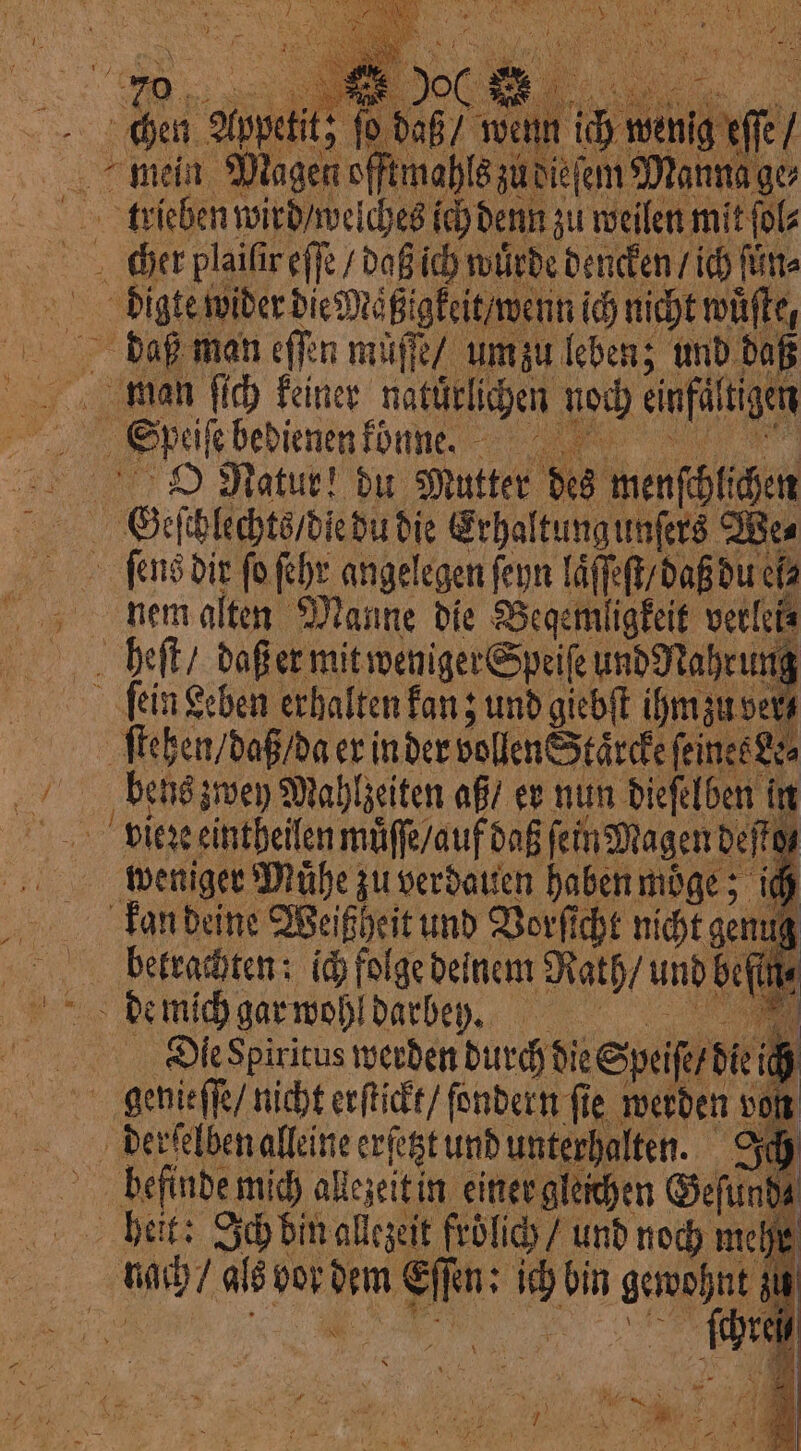 70 )o(
chen Appetit; ſo daß/ wenn ich wenig eſſe/
mein Magen offtmahls zu dieſem Manna ge⸗
trieben wird/welches ich denn zu weilen mit ſol⸗
cher plaiſir eſſe / daß ich wuͤrde dencken / ich ſuͤn⸗
digte wider die Maͤßigkeit/wenn ich nicht wuͤſte,
daß man eſſen muͤſſe/ um zu leben; und daß
man ſich keiner natuͤrlichen noch einfaͤltigen
Speiſe bedienen koͤnne.
O Natur! du Mutter des menſchlichen
Geſchlechts/die du die Erhaltung unſers We⸗
ſens dir ſo ſehr angelegen ſeyn laͤſſeſt/daß du ei⸗
nem alten Manne die Beqemligkeit verlei⸗
heſt/ daß er mit weniger Speiſe und Nahrung
ſein Leben erhalten kan; und giebſt ihm zu ver⸗
ſtehen/daß/da er in der vollen Staͤrcke ſeines Le⸗
bens zwey Mahlzeiten aß/ er nun dieſelben in
vieꝛe eintheilen muͤſſe/auf daß ſein Magen deſto
weniger Muͤhe zu verdauen haben moͤge; ich
kan deine Weißheit und Vorſicht nicht genug
betrachten: ich folge deinem Rath/ und befin⸗
de mich gar wohl darbey.
Die Spiritus werden durch die Speiſe/ die ich
genieſſe/ nicht erſtickt/ ſondern ſie werden von
derſelben alleine erſetzt und unterhalten. Ich
befinde mich allezeit in einer gleichen Geſund⸗
heit: Ich bin allezeit froͤlich / und noch mehr
nach / als vor dem Eſſen: ich bin gewohnt zu
ſchrei⸗